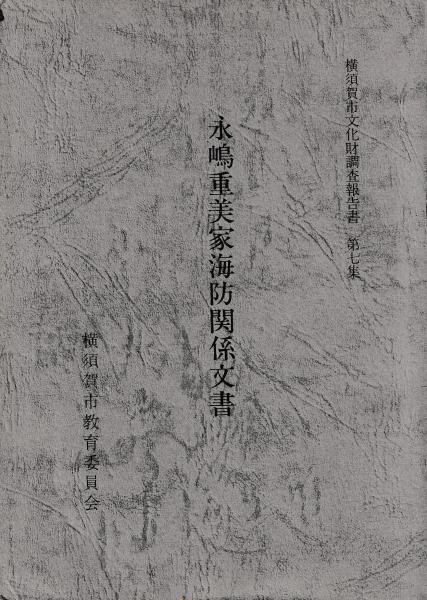 横須賀市文化財調査報告書　第七集
永嶋重美家海防関係文書
横須賀市教育委員会